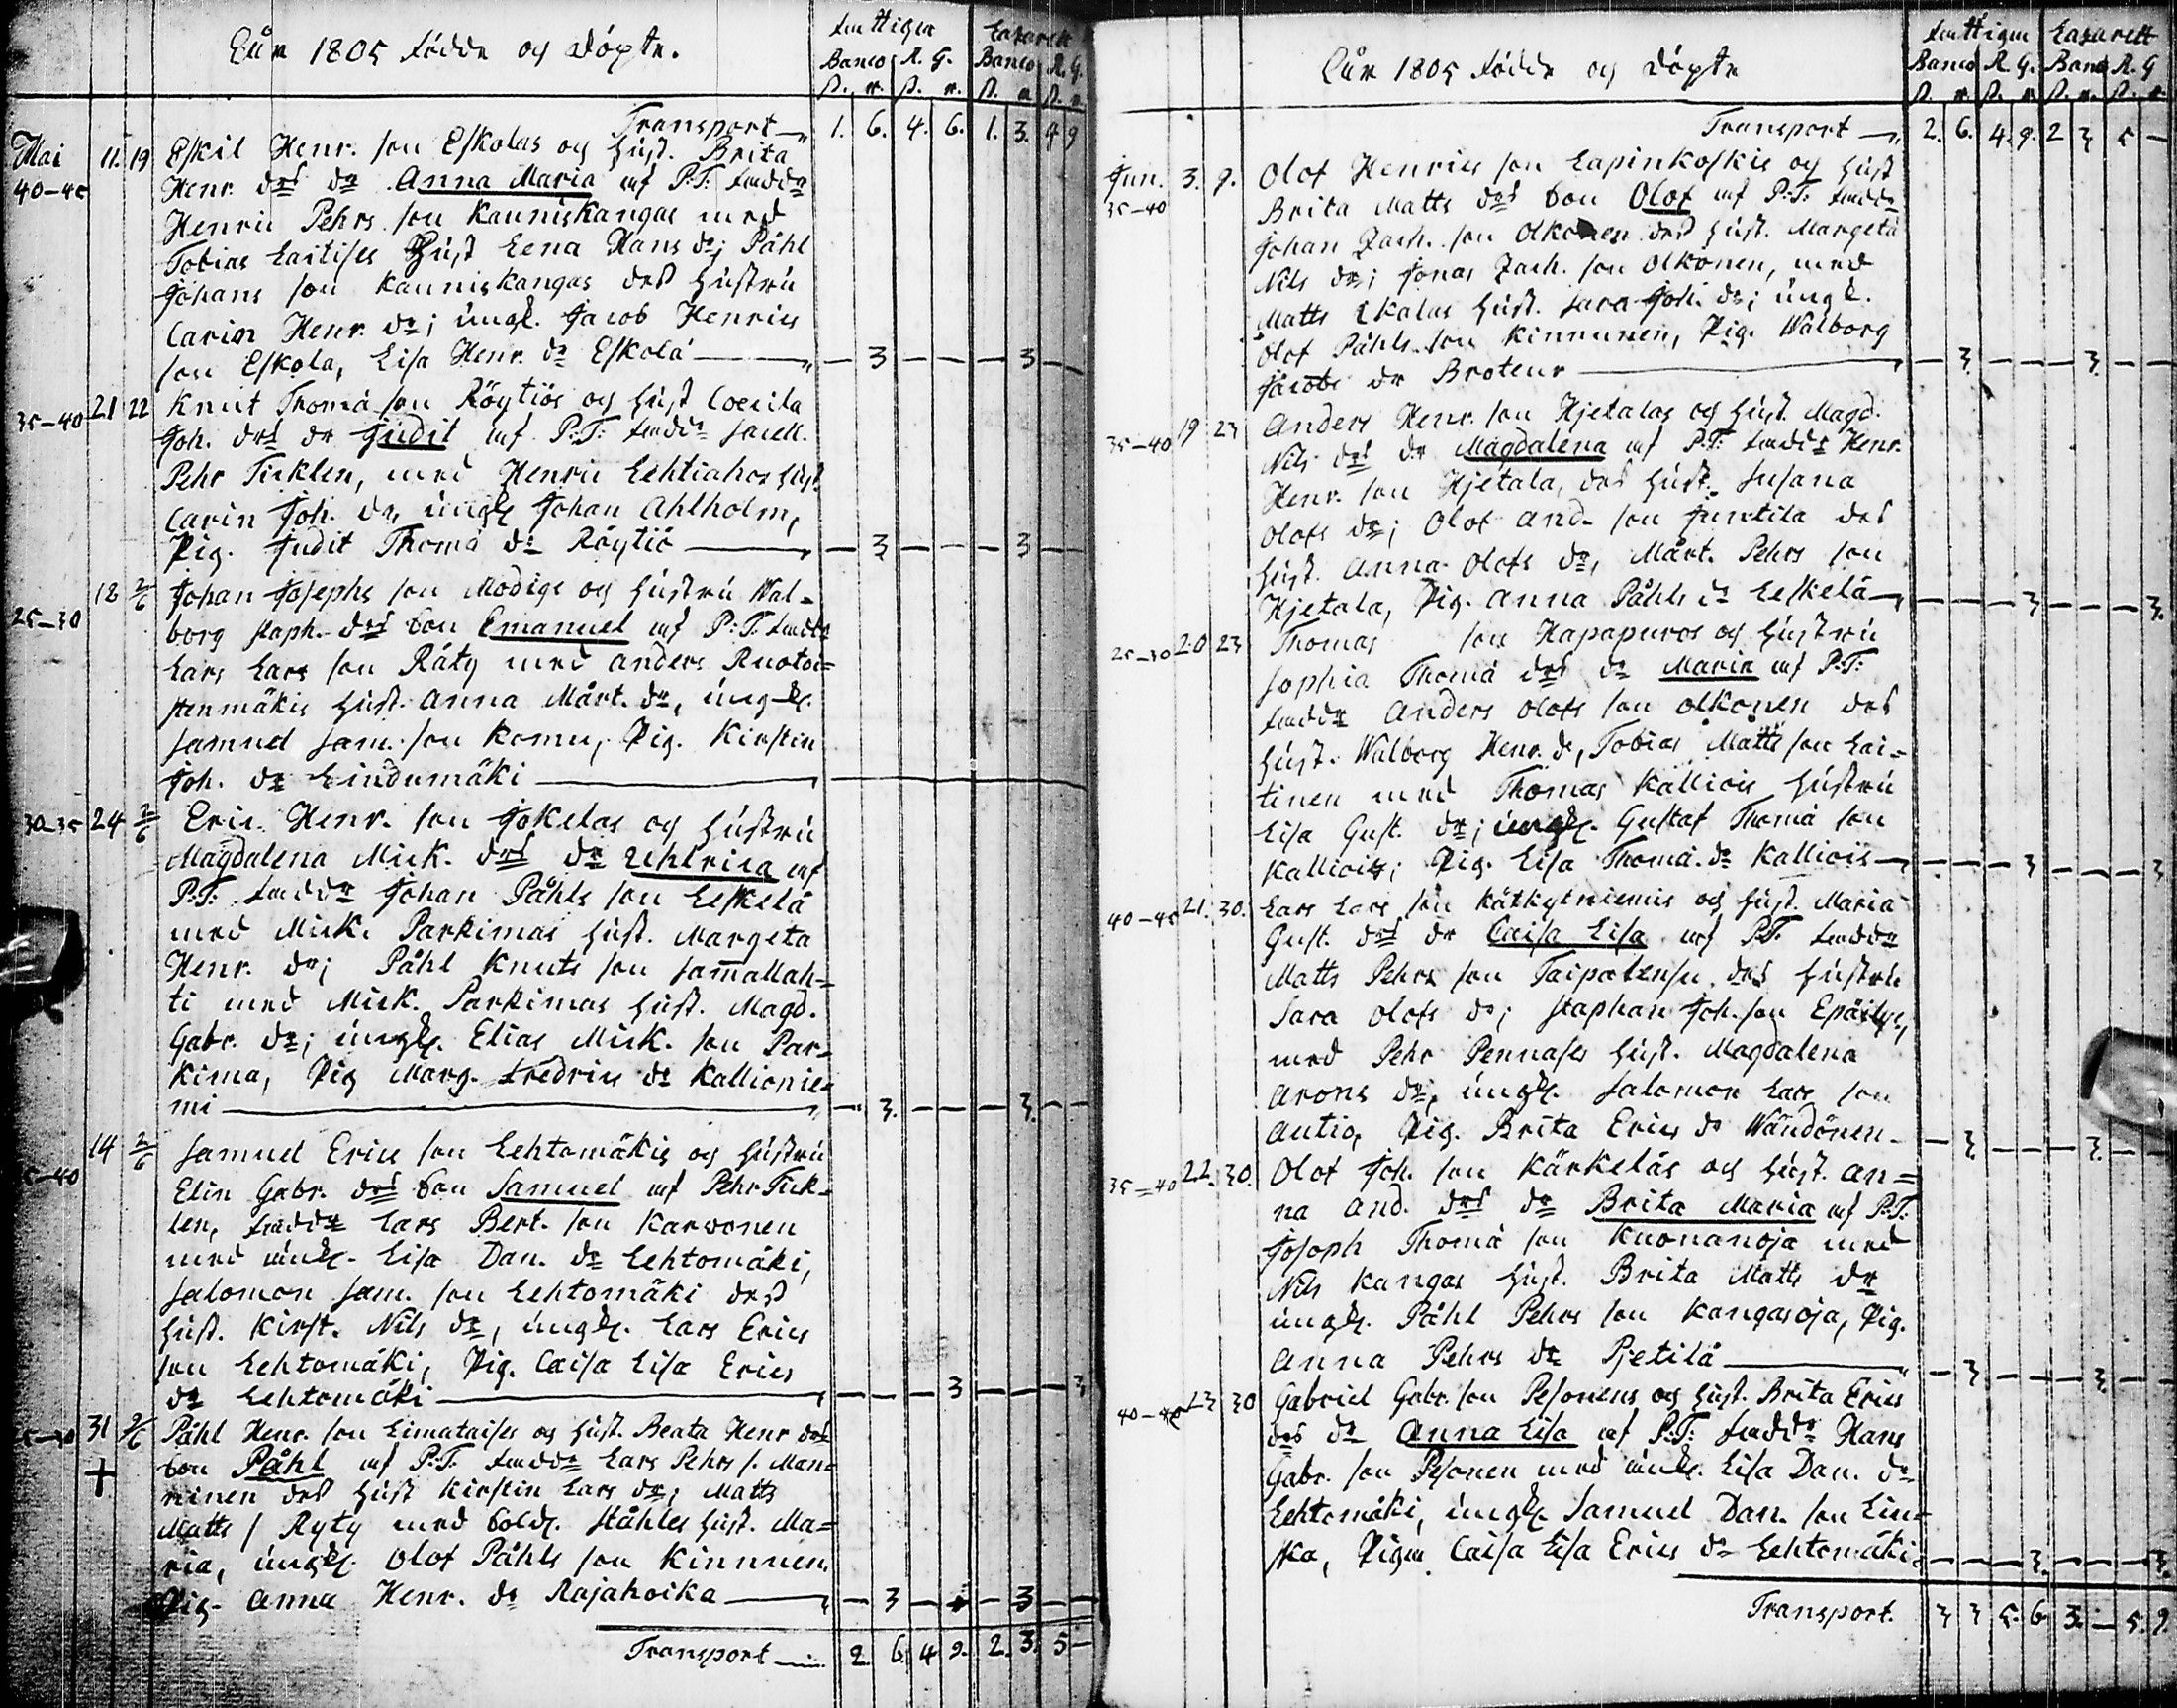 År 1805 födde og döpte.
Fattigas Lazarett
Banco R. G. Banco R. G.
Transport 1. 6. 4. 6. 1. 3. 4 9
Mai 11. 19 Eskil Henr. son Eskolas og hust. Brita
40-45 Henr. drs dr Anna Maria af P:T: faddr
Henric Pehrs son Kauniskangas med
Tobias Laitises Hust Lena Hans dr; Påhl
Johans son Kauniskangas dess hustru
Carin Henr. dr; üngk. Jacob Henrics
son Eskola, Lisa Henr. dr Eskola — 3 — — — 3 —
35-40 21 22 Knut Thomæ son Röytiös og hust Coecila
Joh. drs dr Judit af P:T: faddr
Pehr Ticklen, med Henric Lehtiahos hust.
Carin Joh. dr, üngk Johan Ahlholm,
Pig. Judit Thomæ dr Röytiö — 3 — — — 3 —
18 2/6 Johan Josephs son Modigs og hustru Wal-
25-30 borg Staph. drs son Emanuel af P:T: faddr
Lars Lars son Räty med Anders Ruotoi=
stenmäkis hust. Anna Mårt. dr, üngk.
Samuel Sam. son Komu, Pig. Kirstin
Joh. dr Lindumäki
30-35 24 2/6 Eric Henr. son Jokelas og hustru
Magdalena Mick. drs dr Uhlrica af
P:T: faddr Johan Påhls son Leskelä
med Mick. Parkimas hust. Margeta
Henr. dr; Påhl Knuts son Samallah=
ti med Mick. Parkimas hust. Magd.
Gabr. dr; üngk. Elias Mick. son Par=
kima, Pig Marg. Fredrics dr Kallionie=
mi — 3. — — — 3. — —
14 2/6 Samuel Erics son Lehtomäkis og hustru
5-40 Elin Gabr. drs son Samuel af Pehr Tick=
len, faddr Lars Bert. son Karwonen
med üngk. Lisa Dan. dr Lehtomäki,
Salomon Sam. son Lehtomäki dess
hust. Kirst. Nils dr, üngk. Lars Erics
son Lehtomäki, Pig. Caisa Lisa Erics
dr Lehtomäki — — — 3 — — — 3
31 2/6 Påhl Henr. son Limataises og hust. Beata Henr drs
son Påhl af P:T: faddr Lars Pehrs s. Man=
ninen dess hust Kirstin Lars dr; Matts
Matts s Ryty med sold. Ståhles hust. Ma=
ria, üngk. Olof Påhls son Kinnunen.
Pig. Anna Henr. dr Rajahoika — 3 — — — 3 — —
Transport 2. 6. 4 9. 2. 3. 5 —
År 1805 födde og döpte
Fattigas Lazarett
Banco R. G. Banco R. G
Transport 2. 6. 4. 9. 2 3 5 —
Jun. 3. 9. Olof Henrics son Lapinkoskis og hust
35-40 Brita Matts drs son Olof af P:T: faddr
Johan Zach. son Olkonen dess hust. Margeta
Nils dr; Jonas Zach. son Olkonen, med
Matts Ikalas hust. Sara Joh. dr; üngk.
Olof Påhls son Kinnunen, Pig. Walborg
Jacobs dr Broteus — 3. — — — 3. — —
35-40 19 23 Anders Henr. son Hjetalas og hust. Magd.
Nils drs dr Magdalena af P:T: faddr Henr.
Henr. son Hjetala, dess hust. Susana
Olofs dr; Olof And. son Juntila dess
hust. Anna Olofs dr, Mårt. Pehrs son
Hjetala, Pig. Anna Påhls dr Leskelä — — — 3 — — — 3.
25-30 20 23 Thomas son Hapapuros og hustru
Sophia Thomæ drs dr Maria af P:T:
faddr Anders Olofs son Olkonen dess
hust. Walborg Henr. d, Tobias Matts son Lai=
tinen med Thomas Kallios hustru
Lisa Gust. dr; üngk. Gustaf Thomæ son
Kallio; Pig. Lisa Thomæ. dr Kallio — — — 3 — — — 3
40-45 21. 30. Lars Lars son Kätkytniemis og hust. Maria
Gust. drs dr Caisa Lisa af P:T. faddr
Matts Pehrs son Taipalensu dess hustru
Sara Olofs dr; Staphan Joh. son Epäilys,
med Pehr Pennases hust. Magdalena
Arons dr, üngk. Salomon Lars son
Autio, Pig. Brita Erics dr Wändönen — 3. — — — 3. — —
35-40 22. 30. Olof Joh. son Kärkeläs og hust. An=
na And. drs dr Brita Maria af P.T:
Joseph Thomæ son Kuonanoja med
Nils Kangas hust. Brita Matts dr
üngk. Påhl Pehrs son Kangasoja, Pig.
Anna Pehrs dr Pjetilä — 3 — — — 3. — —
40-45 23 30 Gabriel Gabr. son Pesonens og hust. Brita Erics
drs dr Anna Lisa af P:T: faddr Hans
Gabr. son Pesonen med üngk. Lisa Dan. dr
Lehtomäki, üngk. Samuel Dan. son Lin=
ska, Pigan Caisa Lisa Erics dr Lehtomäki — — — 3. — — — 3.
Transport. 3 3 5. 6 3. — 5. 9.